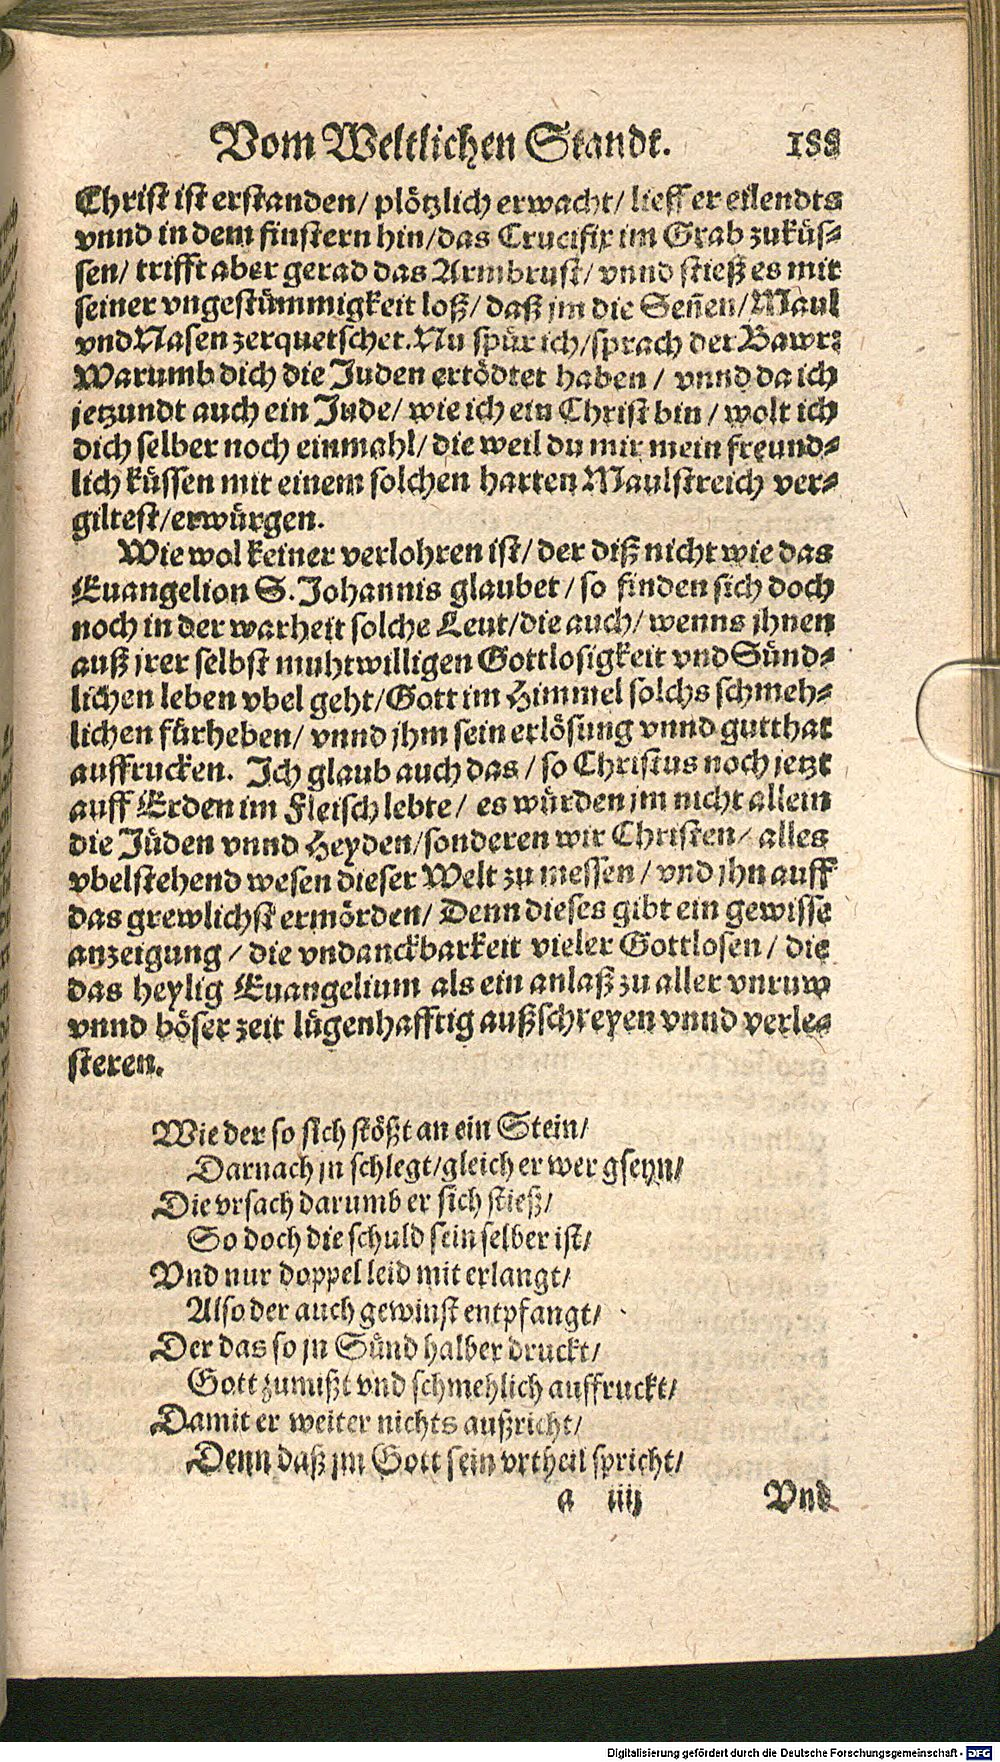 Vom Weltlichen Standt. 188
Christ ist erstanden/ plötzlich erwacht/ lieff er eilendts
vnnd in dem finstern hin/das Crucifix im Grab zuküs-
sen/ trifft aber gerad das Armbrust/ vnnd stieß es mit
seiner vngestümmigkeit loß/ daß jm die Señen/ Maul
vnd Nasen zerquetschet. Nu spür ich/sprach der Bawr:
Warumb dich die Juden ertödtet haben/ vnnd da ich
jetzundt auch ein Jude/ wie ich ein Christ bin/ wolt ich
dich selber noch einmahl/ die weil du mir mein freund-
lich küssen mit einem solchen harten Maulstreich ver-
giltest/erwürgen.
Wie wol keiner verlohren ist/ der diß nicht wie das
Euangelion S. Johannis glaubet/ so finden sich doch
noch in der warheit solche Leut/die auch/ wenns jhnen
auß jrer selbst muhtwilligen Gottlosigkeit vnd Sünd-
lichen leben vbel geht/Gott im Himmel solchs schmeh-
lichen fürheben/ vnnd jhm sein erlösung vnnd gutthat
auffrucken. Ich glaub auch das/ so Christus noch jetzt
auff Erden im Fleisch lebte/ es würden jm nicht allein
die Jüden vnnd Heyden/sonderen wir Christen/ alles
vbelstehend wesen dieser Welt zu messen/ vnd jhn auff
das grewlichst ermörden/ Denn dieses gibt ein gewisse
anzeigung/ die vndanckbarkeit vieler Gottlosen/ die
das heylig Euangelium als ein anlaß zu aller vnruw
vnnd böser zeit lügenhafftig außschreyen vnnd verle-
steren.
Wie der so sich stößt an ein Stein/
Darnach jn schlegt/gleich er wer gseyn/
Die vrsach darumb er sich stieß/
So doch die schuld sein selber ist/
Vnd nur doppel leid mit erlangt/
Also der auch gewinst entpfangt/
Der das so jn Sünd halber druckt/
Gott zumißt vnd schmehlich auffruckt/
Damit er weiter nichts außricht/
Denn daß jm Gott sein vrtheil spricht/
a iiij Vnd
Digitalisierung gefördert durch die Deutsche Forschungsgemeinschaft - DFG